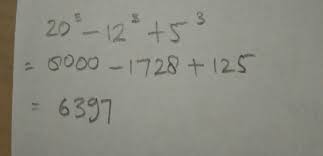 20³ - 12³ + 5³
= 8000 - 1728 + 125
= 6397